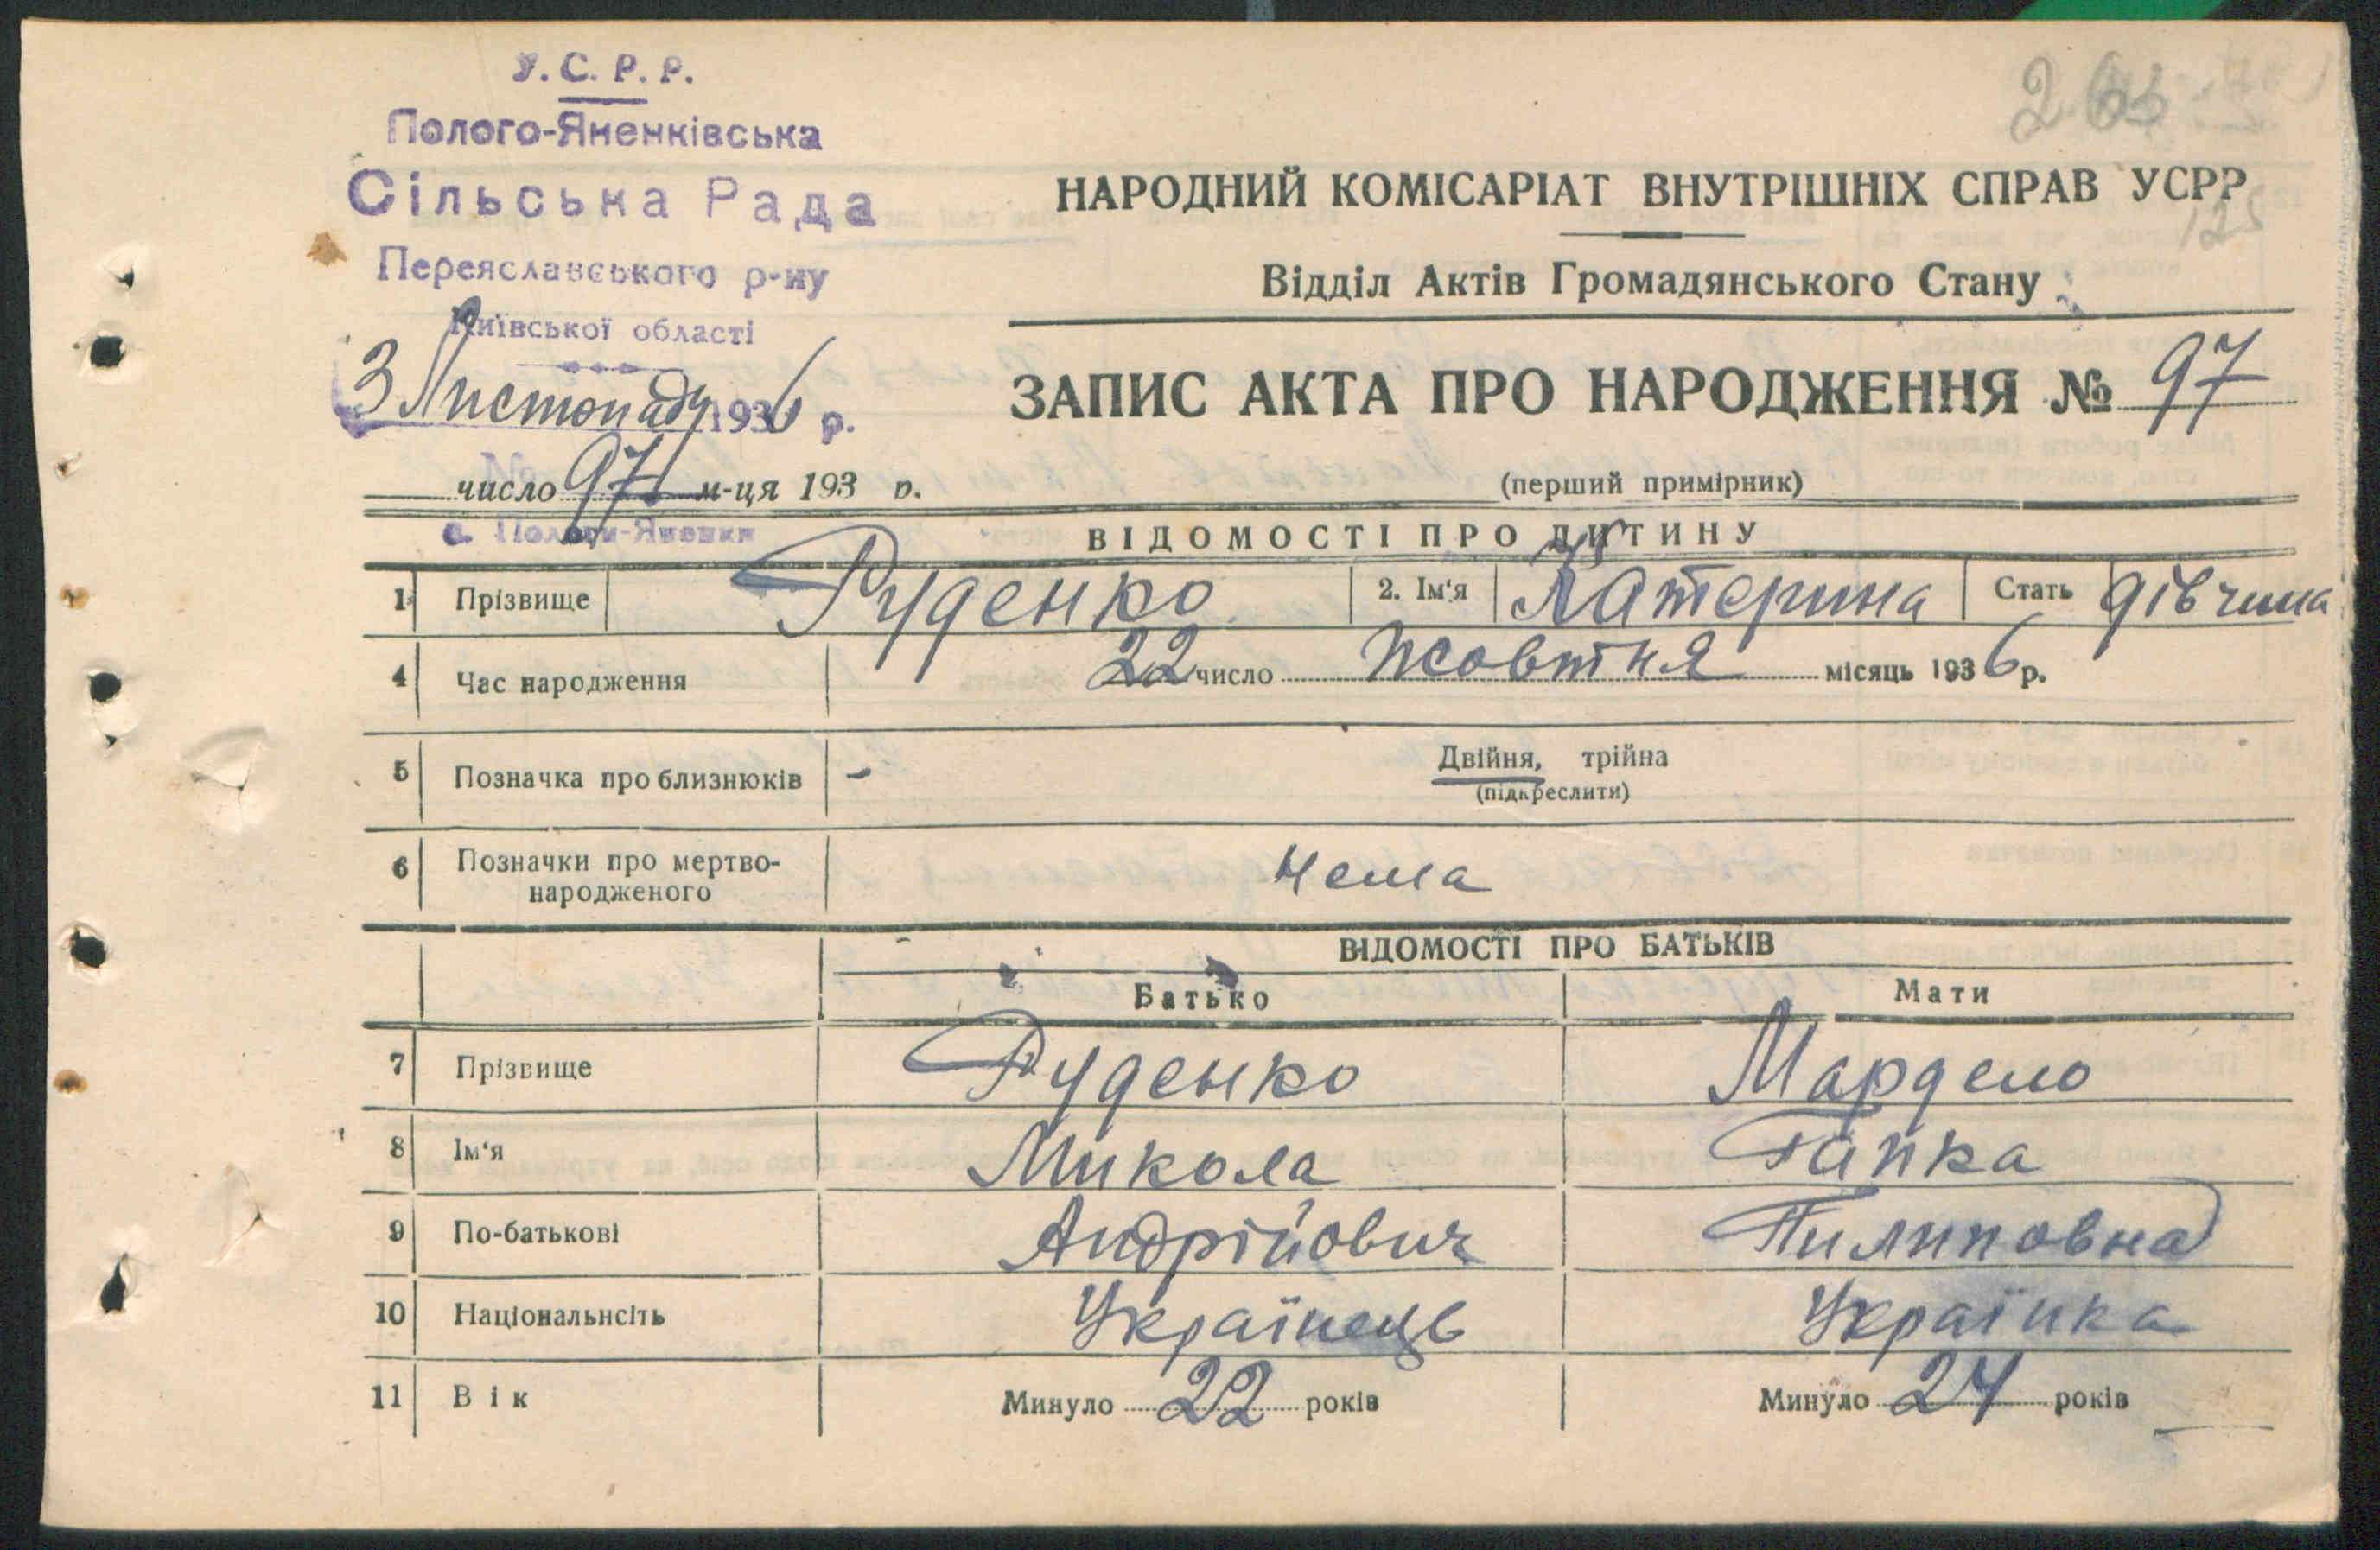 У.С.Р.Р.
Полого-Яненківська
Сільська Рада
Переяславського р-ну
Київської області
3 Листопаду 1936 р.
№ 97
число м-ця 193 р.
с. Пологи-Яненки
263
НАРОДНИЙ КОМІСАРІАТ ВНУТРІШНІХ СПРАВ УСРР
125
Відділ Актів Громадянського Стану
ЗАПИС АКТА ПРО НАРОДЖЕННЯ № 97
(перший примірник)
ВІДОМОСТІ ПРО ДИТИНУ
1 Прізвище Руденко 2. Ім'я Катерина Стать дівчина
4 Час народження 22 число Жовтня місяць 1936 р.
5 Позначка про близнюків - Двійня, трійна
(підкреслити)
6 Позначки про мертво-
народженого Нема
ВІДОМОСТІ ПРО БАТЬКІВ
Батько Мати
7 Прізвище Руденко Мардело
8 Ім'я Микола Гапка
9 По-батькові Андрійович Пилиповна
10 Національнсіть Українець Українка
11 Вік Минуло 22 років Минуло 24 років